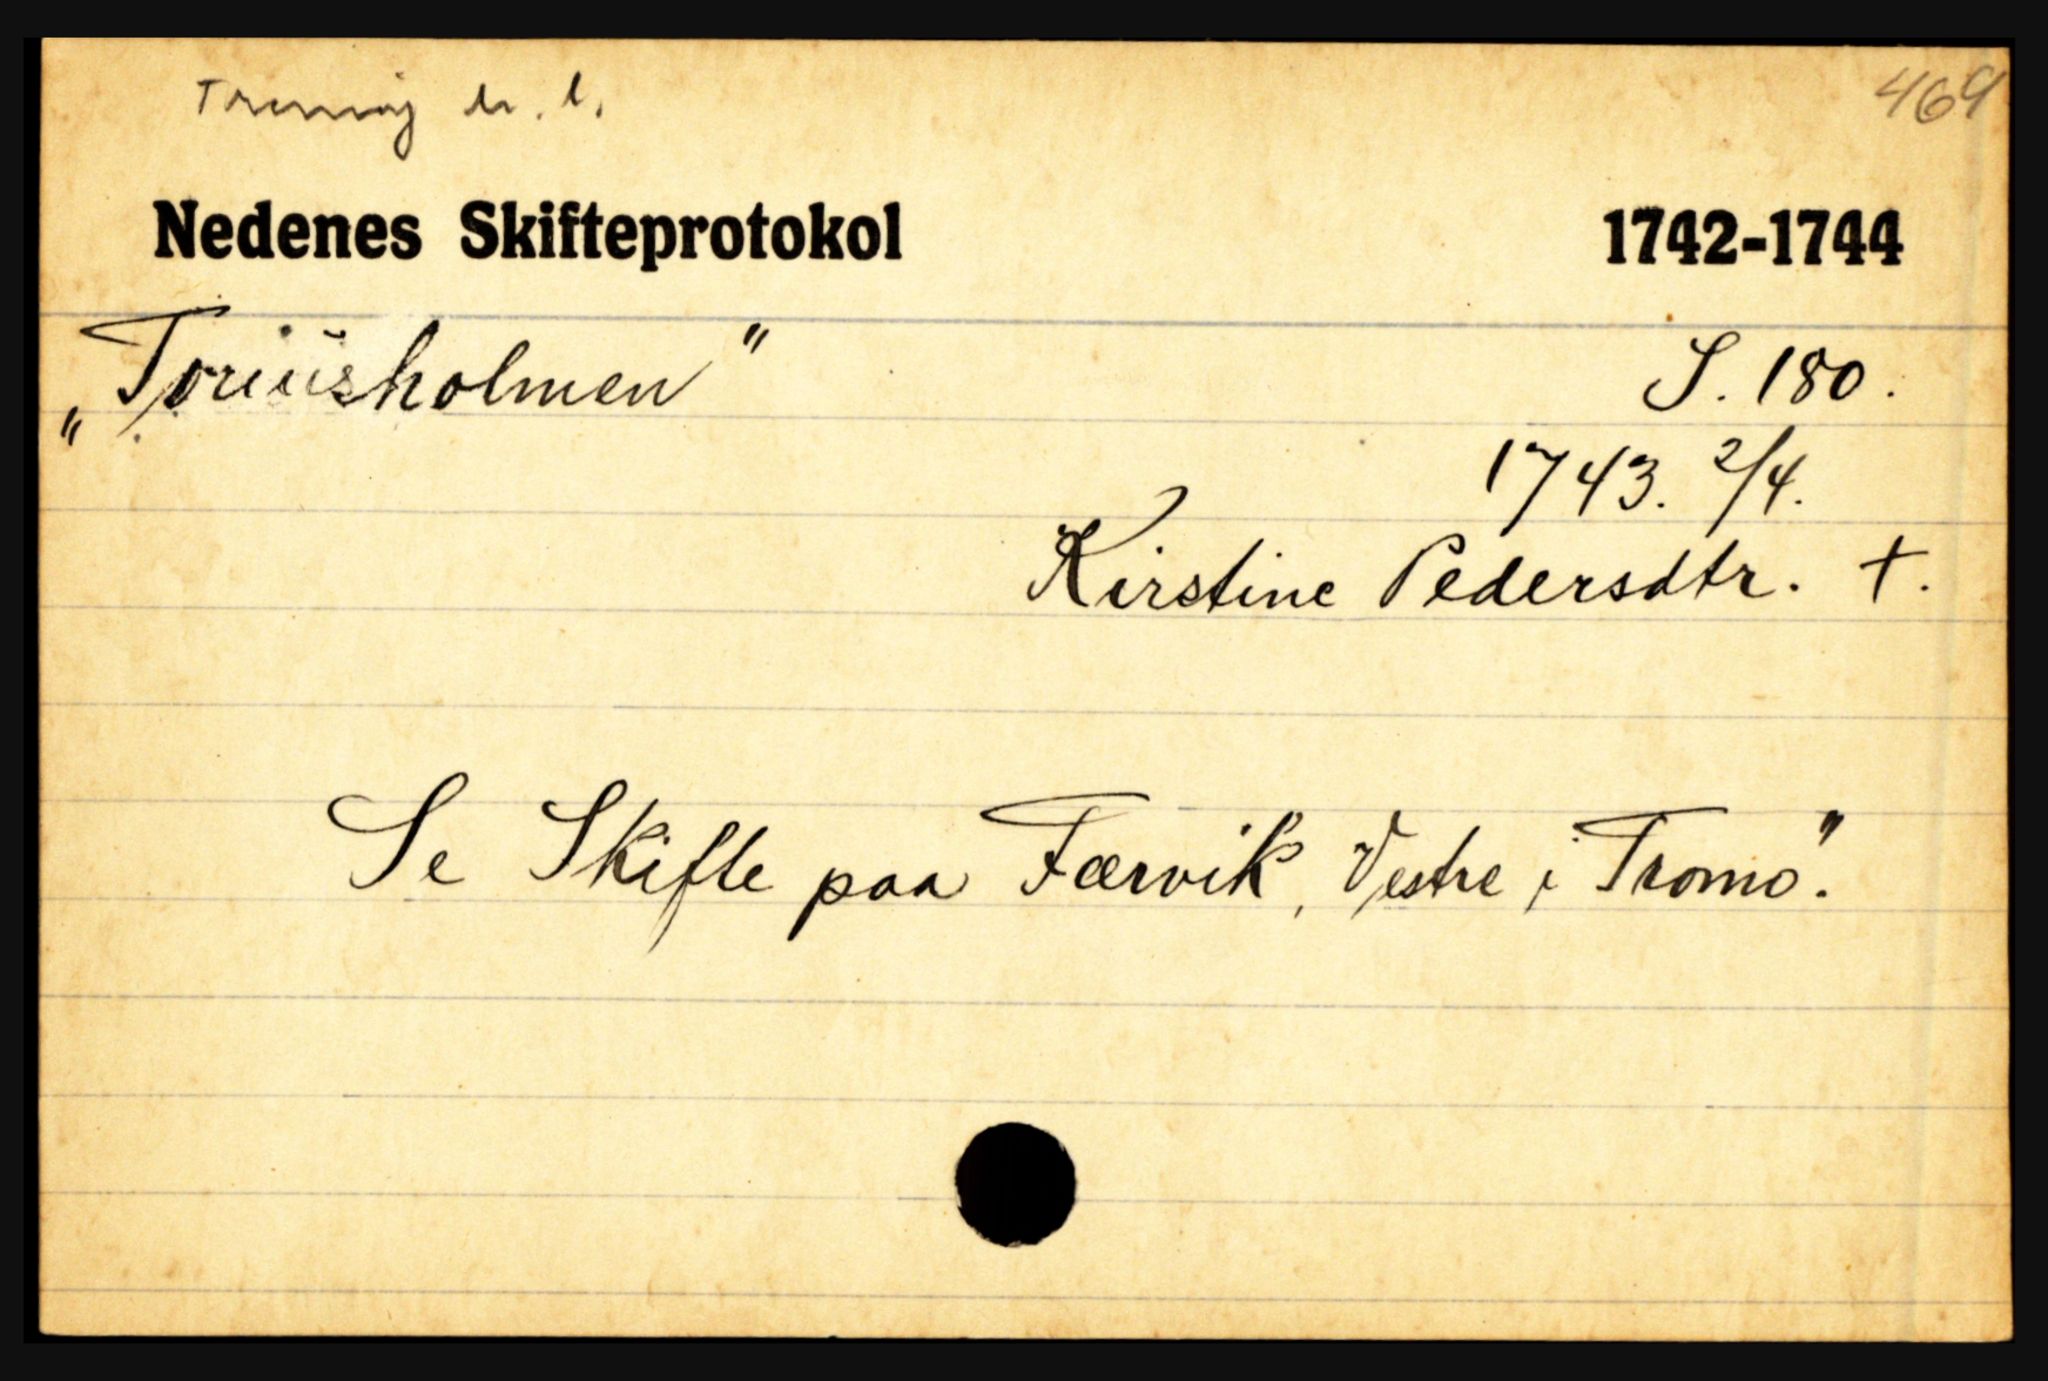 Tromøy h. l.
469
Nedenes Skifteprotokol 1742-1744
„Toriüsholmen" S. 180.
1743. 2/4.
Kirstine Pedersdtr. †.
Se Skifte paa Færvik, Vestre i Tromö.